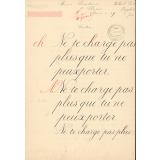 ch. Ne te charge pas
plus que tu ne
peux porter.
Ne te charge pas
plus que tu ne
peux porter
Ne te charge pas plus